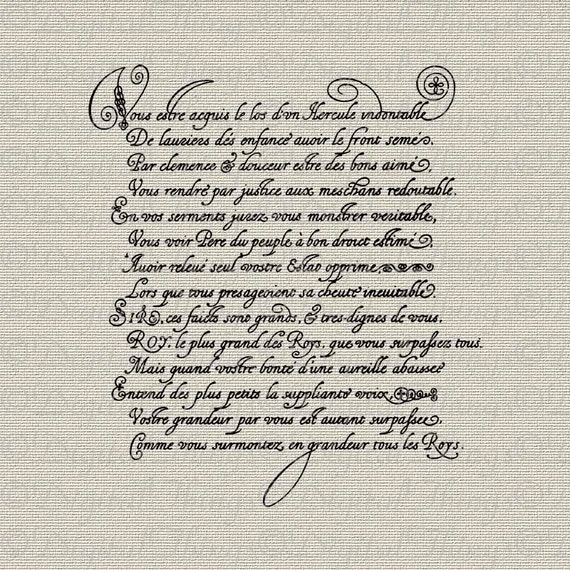 Vous estre acquis le los d'vn Hercule indontable
De lauriers dés enfance auoir le front semé,
Par clemence & douceur estre des bons aimé,
Vous rendre par justice aux meschans redoutable.
En vos serments jurez vous monstrer veritable,
Vous voir Pere du peuple à bon droict estimé,
Auoir releué seul vostre Estat opprimé
Lors que tous presageoient sa cheute ineuitable.
SIRE, ces faicts sont grands, & tres-dignes de vous,
ROY, le plus grand des Roys, que vous surpassez tous.
Mais quand vostre bonté d'une aureille abaissee
Entend des plus petits la suppliante voix,
Vostre grandeur par vous est autant surpassee,
Comme vous surmontez en grandeur tous les Roys.